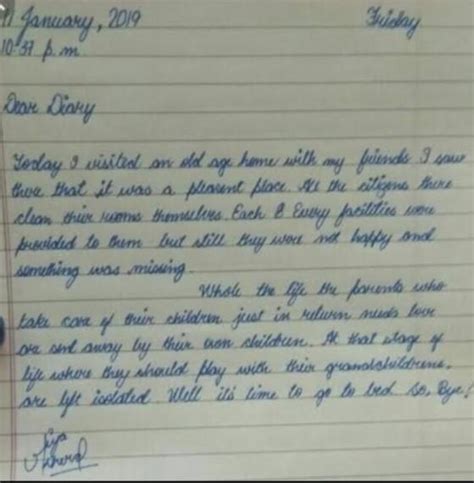 11 January, 2019 Friday
10:37 p.m
Dear Diary
Today I visited an old age home with my friends I saw
there that it was a pleasent place. All the citizens there
clean their rooms themselves. Each & Every facilities were
provided to them but still they were not happy and
something was missing.
Whole the life the parents who
take care of their children just in return needs love
are sent away by their own children. At that stage of
life where they should play with their grandchildrens,
are left isolated. Well it's time to go to bed. So, Bye!